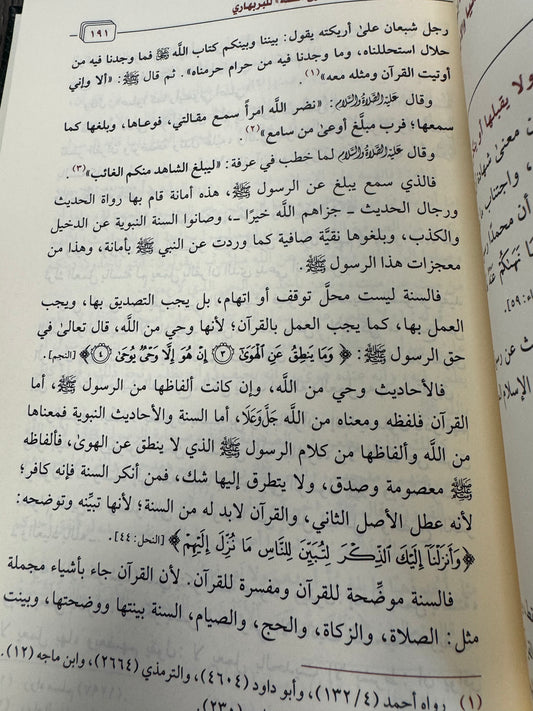 للبربهاري
١٩١
رجل شبعان على أريكته يقول: بيننا وبينكم كتاب الله ﷻ فما وجدنا فيه من
حلال استحللناه، وما وجدنا فيه من حرام حرمناه». ثم قال ﷺ: «ألا وإني
أوتيت القرآن ومثله معه»(١).
وقال عليه الصلاة والسلام: «نضر الله امرأً سمع مقالتي، فوعاها، وبلغها كما
سمعها؛ فرب مبلَّغ أوعىٰ من سامع»(٢).
وقال عليه الصلاة والسلام لما خطب في عرفة: «ليبلغ الشاهد منكم الغائب»(٣).
فالذي سمع يبلغ عن الرسول ﷺ، هذه أمانة قام بها رواة الحديث
ورجال الحديث ـ جزاهم الله خيرًا ـ، وصانوا السنة النبوية عن الدخيل
والكذب، وبلغوها نقيَّة صافية كما وردت عن النبي ﷺ بأمانة، وهذا من
معجزات هذا الرسول ﷺ.
فالسنة ليست محلَّ توقف أو اتهام، بل يجب التصديق بها، ويجب
العمل بها، كما يجب العمل بالقرآن؛ لأنها وحي من الله، قال تعالىٰ في
حق الرسول ﷺ: ﴿وَمَا يَنطِقُ عَنِ ٱلْهَوَىٰٓ ۝٣ إِنْ هُوَ إِلَّا وَحْىٌ يُوحَىٰ ۝٤﴾ [النجم].
فالأحاديث وحي من الله، وإن كانت ألفاظها من الرسول ﷺ، أما
القرآن فلفظه ومعناه من الله جَلَّ وَعَلَا، أما السنة والأحاديث النبوية فمعناها
من الله وألفاظها من كلام الرسول ﷺ الذي لا ينطق عن الهوىٰ، فألفاظه
ﷺ معصومة وصدق، ولا يتطرق إليها شك، فمن أنكر السنة فإنه كافر؛
لأنه عطل الأصل الثاني، والقرآن لابد له من السنة؛ لأنها تبيِّنه وتوضحه:
﴿وَأَنزَلْنَآ إِلَيْكَ ٱلذِّكْرَ لِتُبَيِّنَ لِلنَّاسِ مَا نُزِّلَ إِلَيْهِمْ﴾ [النحل: ٤٤].
فالسنة موضِّحة للقرآن ومفسرة للقرآن. لأن القرآن جاء بأشياء مجملة
مثل: الصلاة، والزكاة، والحج، والصيام، السنة بينتها ووضحتها، وبينت
(١) رواه أحمد (٤/ ١٣٢)، وأبو داود (٤٦٠٤)، والترمذي (٢٦٦٤)، وابن ماجه (١٢).